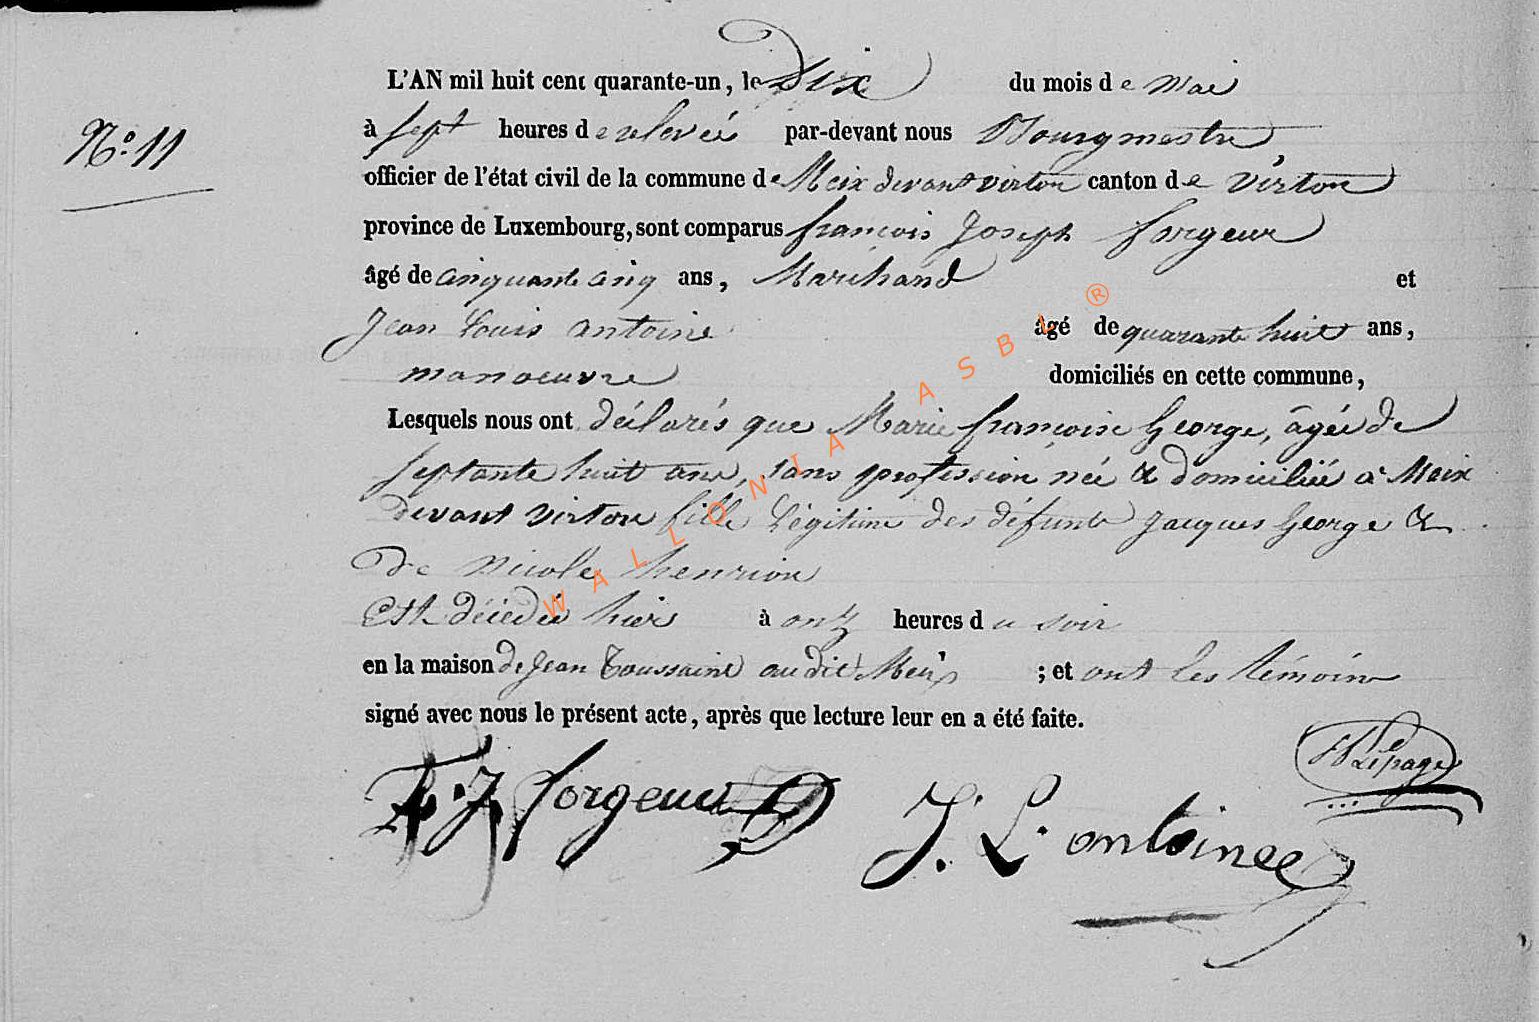 L'AN mil huit cent quarante-un, le Dix du mois de Mai
N° 11
à sept heures de relevée par-devant nous Bourgmestre
officier de l'état civil de la commune de Meix devant virton canton de virton
province de Luxembourg, sont comparus françois Joseph forgeur
âgé de cinquante cinq ans, Marchand et
Jean Louis antoine âgé de quarante huit ans,
manoeuvre domiciliés en cette commune,
Lesquels nous ont déclarés que Marie françoise George, âgée de
septante huit ans, sans profession née & domiciliée à Meix
devant virton fille légitime des défunts Jacques George &
de Nicole henrion
est décédée hier à onz heures du soir
en la maison de Jean Toussaint audit Meix ; et ont les témoins
signé avec nous le présent acte, après que lecture leur en a été faite.
Lepage
F. J. forgeur
J. L. antoine
WALLONIA ASBL ®